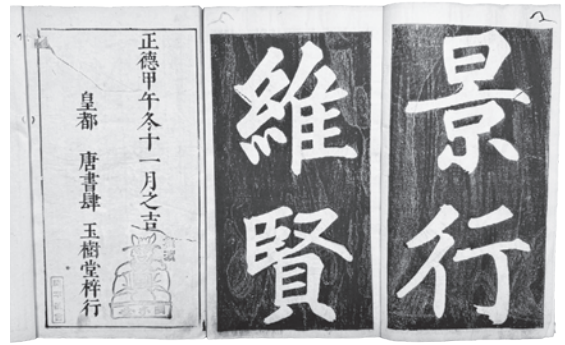 景行
維賢
正德甲午冬十一月之吉
皇都 唐書肆 玉樹堂梓行